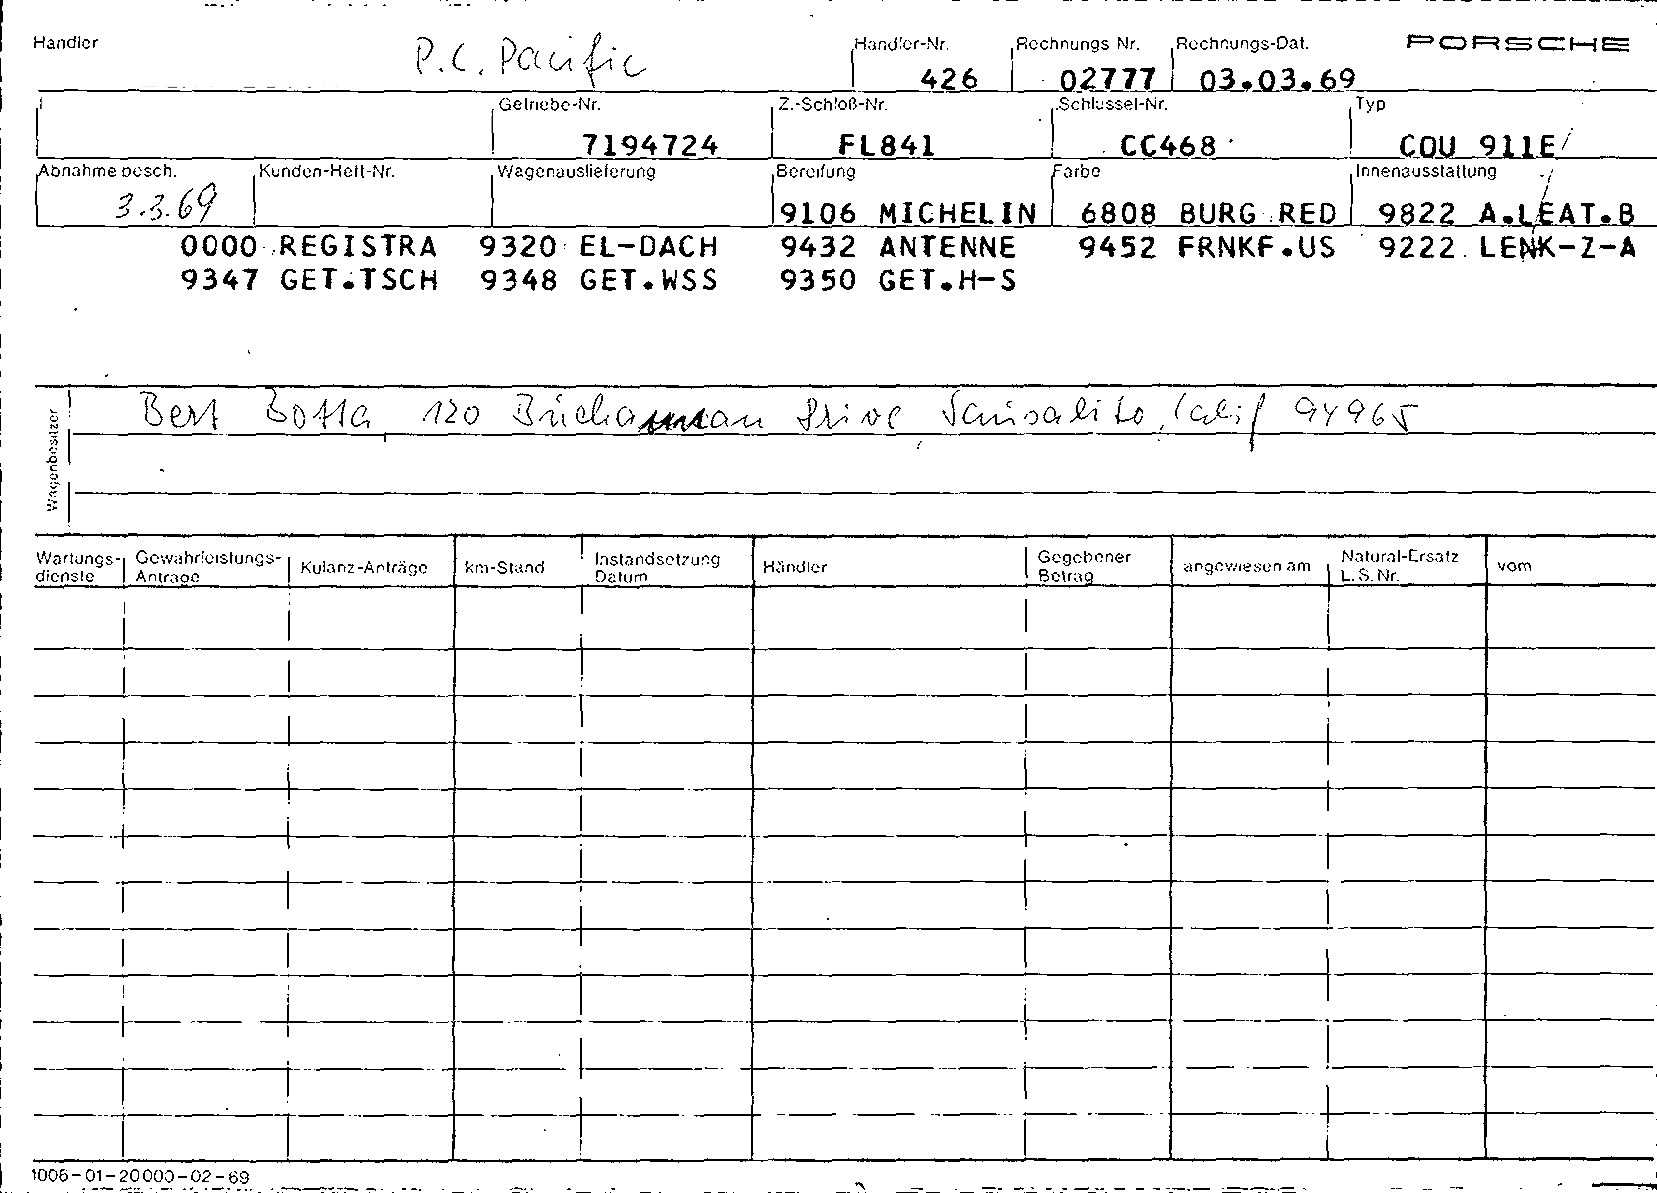 Händler P.C. Pacific Händler-Nr. Rechnungs Nr. Rechnungs-Dat. PORSCHE
426 02777 03.03.69
Getriebe-Nr. Z.-Schloß-Nr. Schlüssel-Nr. Typ
7194724 FL841 CC468 COU 911E
Abnahme besch. Kunden-Heft-Nr. Wagenauslieferung Bereifung Farbe Innenausstattung
3.3.69 9106 MICHELIN 6808 BURG RED 9822 A.LEAT.B
0000 REGISTRA 9320 EL-DACH 9432 ANTENNE 9452 FRNKF.US 9222 LENK-Z-A
9347 GET.TSCH 9348 GET.WSS 9350 GET.H-S
Wagenbesitzer
Bert Botta, 120 Drive Sausalito, Calif 94965
Wartungs- Gewährleistungs- Kulanz-Anträge km-Stand Instandsetzung Händler Gegebener angewiesen am Natural-Ersatz vom
dienste Anträge Datum Betrag L.S.Nr.
1006-01-20000-02-69